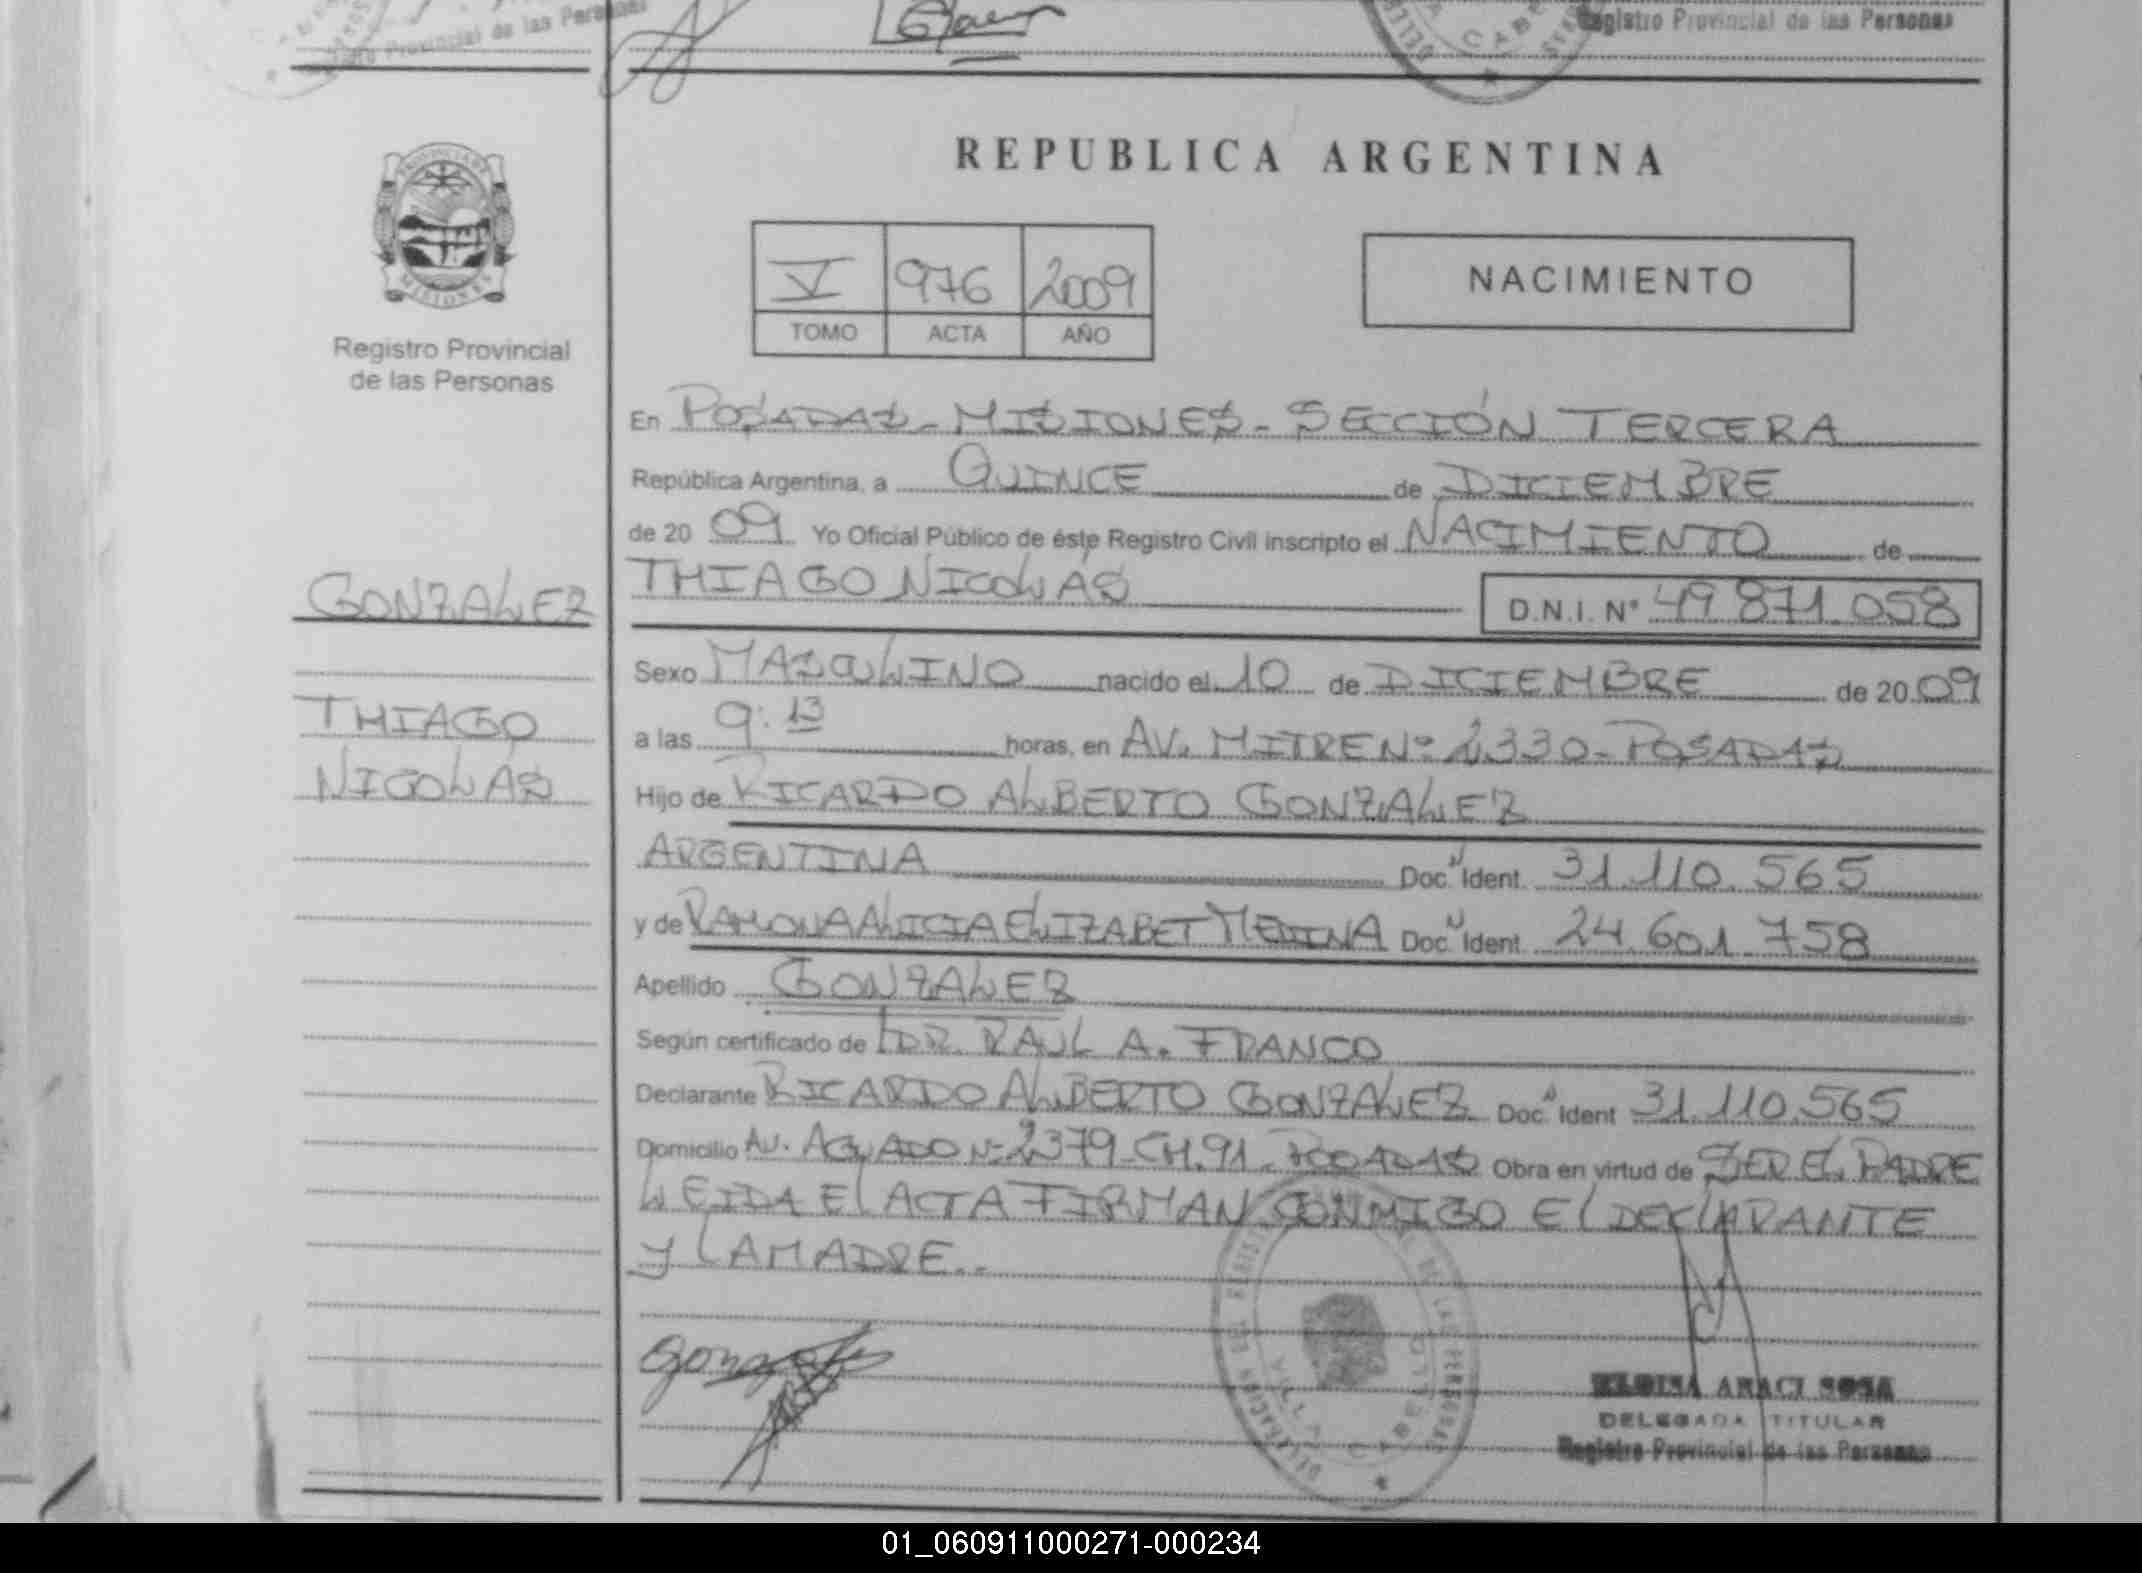 Registro Provincial de las Personas
REPUBLICA ARGENTINA
PROVINCIA DE
MISIONES
Registro Provincial
de las Personas
V 976 2009
TOMO ACTA AÑO
NACIMIENTO
En POSADAS - MISIONES - SECCIÓN TERCERA
República Argentina, a QUINCE de DICIEMBRE
de 20 09 Yo Oficial Público de éste Registro Civil inscripto el NACIMIENTO de
GONZALEZ
THIAGO NICOLÁS D.N.I. N° 49.871.058
Sexo MASCULINO nacido el 10 de DICIEMBRE de 20 09
THIAGO
NICOLÁS
a las 9:13 horas, en AV. MITRE Nº 2330 - POSADAS
Hijo de RICARDO ALBERTO GONZALEZ
ARGENTINA Doc. Ident. 31.110.565
y de RAMONA ALICIA ELIZABET MEDINA Doc. Ident. 24.601.758
Apellido GONZALEZ
Según certificado de DR. RAUL A. FRANCO
Declarante RICARDO ALBERTO GONZALEZ Doc. Ident 31.110.565
Domicilio AV. AGUADO Nº 2379 - CH. 91 - POSADAS Obra en virtud de SER EL PADRE
LEIDA El ACTA FIRMAN CONMIGO El DECLARANTE
y LA MADRE..
ELOISA ARACI SOSA
DELEGADA TITULAR
Registro Provincial de las Personas
01_060911000271-000234